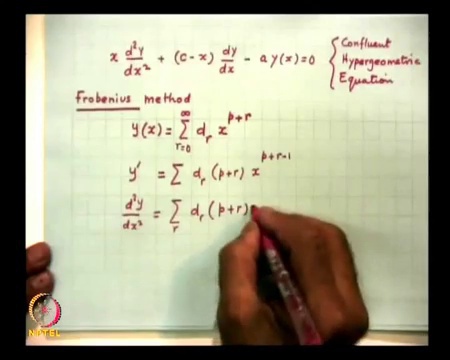 x d²y/dx² + (c-x) dy/dx - a y(x) = 0 { Confluent
Hypergeometric
Equation
Frobenius method
y(x) = ∑_{r=0}^{∞} d_r x^{p+r}
y' = ∑ d_r (p+r) x^{p+r-1}
d²y/dx² = ∑_r d_r (p+r)
NPTEL